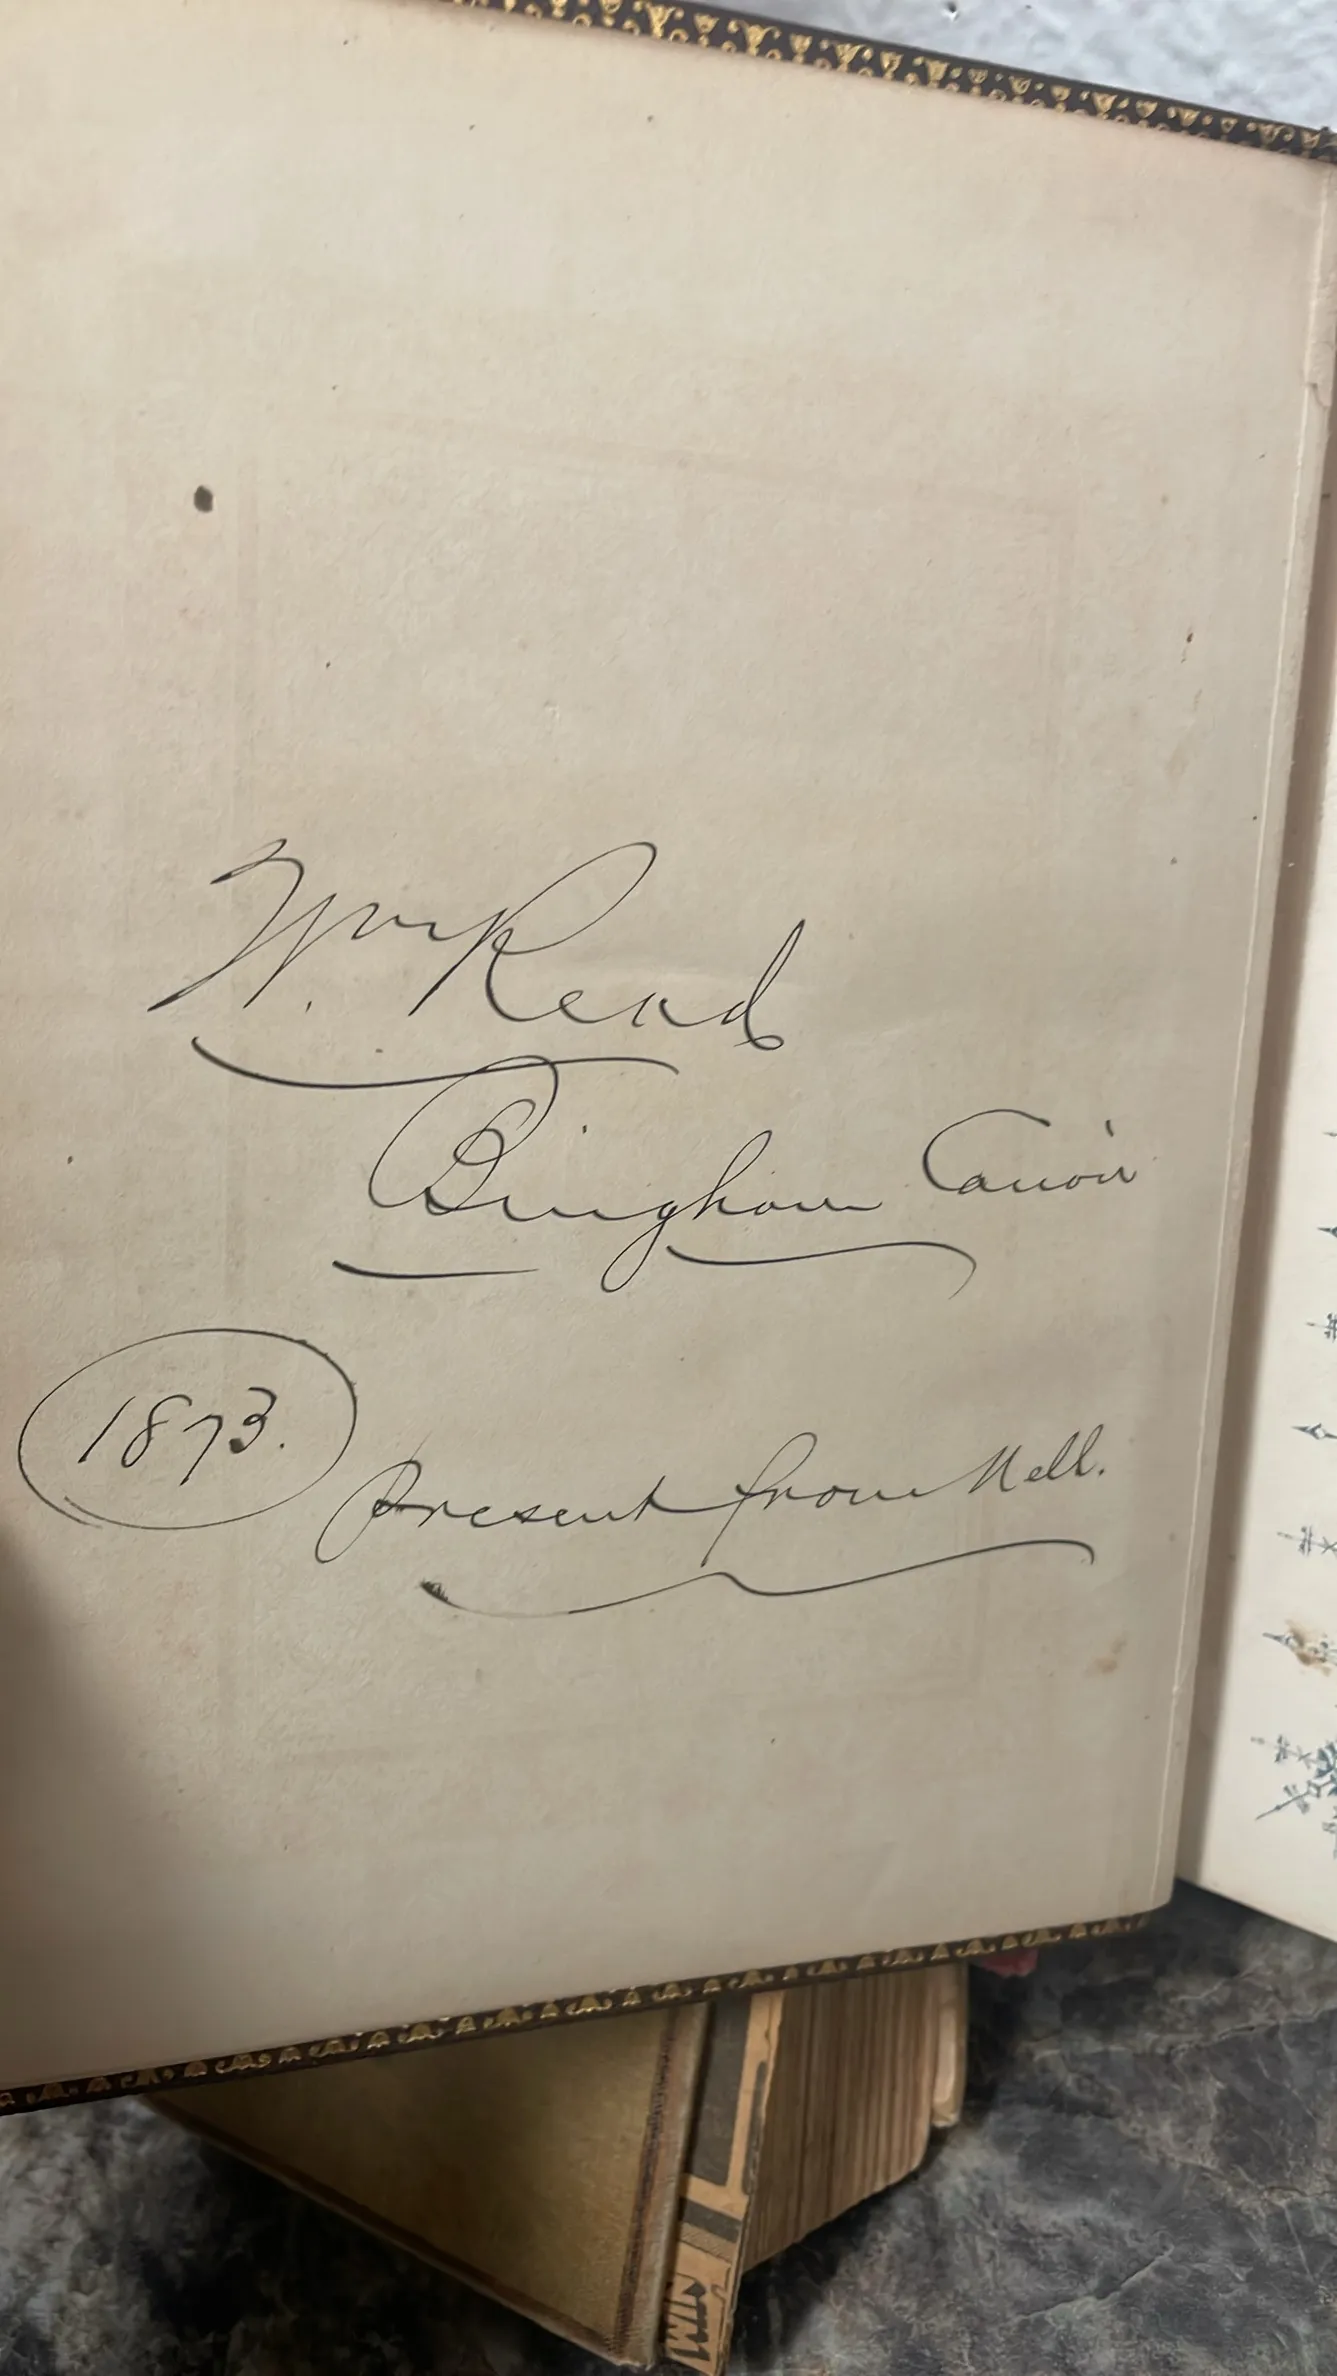 Wm. Read
Bingham Cañon
1873.
Present from Nell.